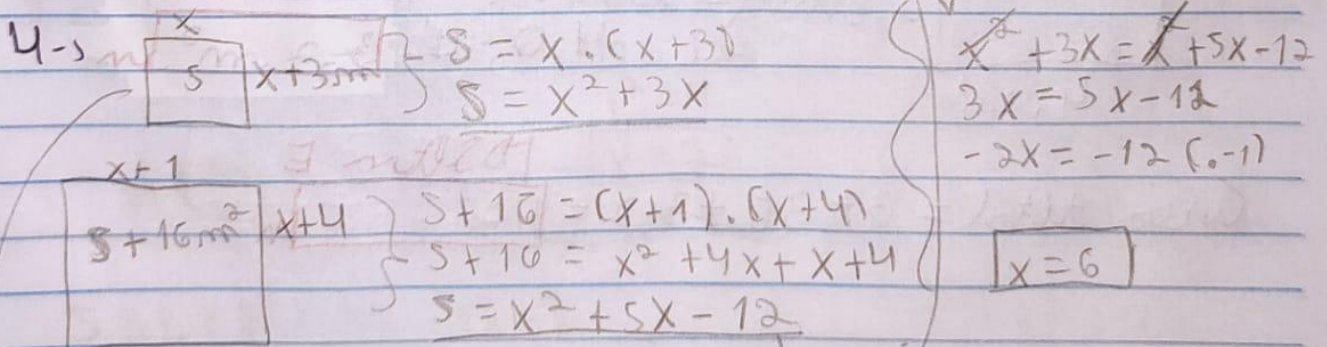 4-)
x
S
x+3m
S = x . (x+3)
S = x² + 3x
x+1
S+16m²
x+4
S + 16 = (x+1) . (x+4)
S + 16 = x² + 4x + x + 4
S = x² + 5x - 12
x² + 3x = x² + 5x - 12
3x = 5x - 12
-2x = -12 (.-1)
x = 6